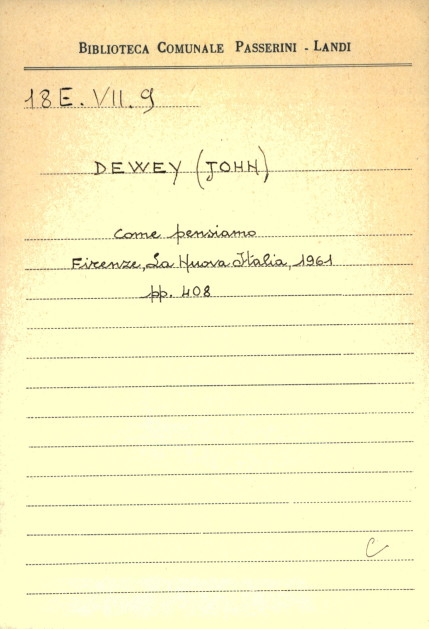 BIBLIOTECA COMUNALE PASSERINI - LANDI
18 E. VII. 9
DEWEY (JOHN)
Come pensiamo
Firenze, La Nuova Italia, 1961
pp. 408
C